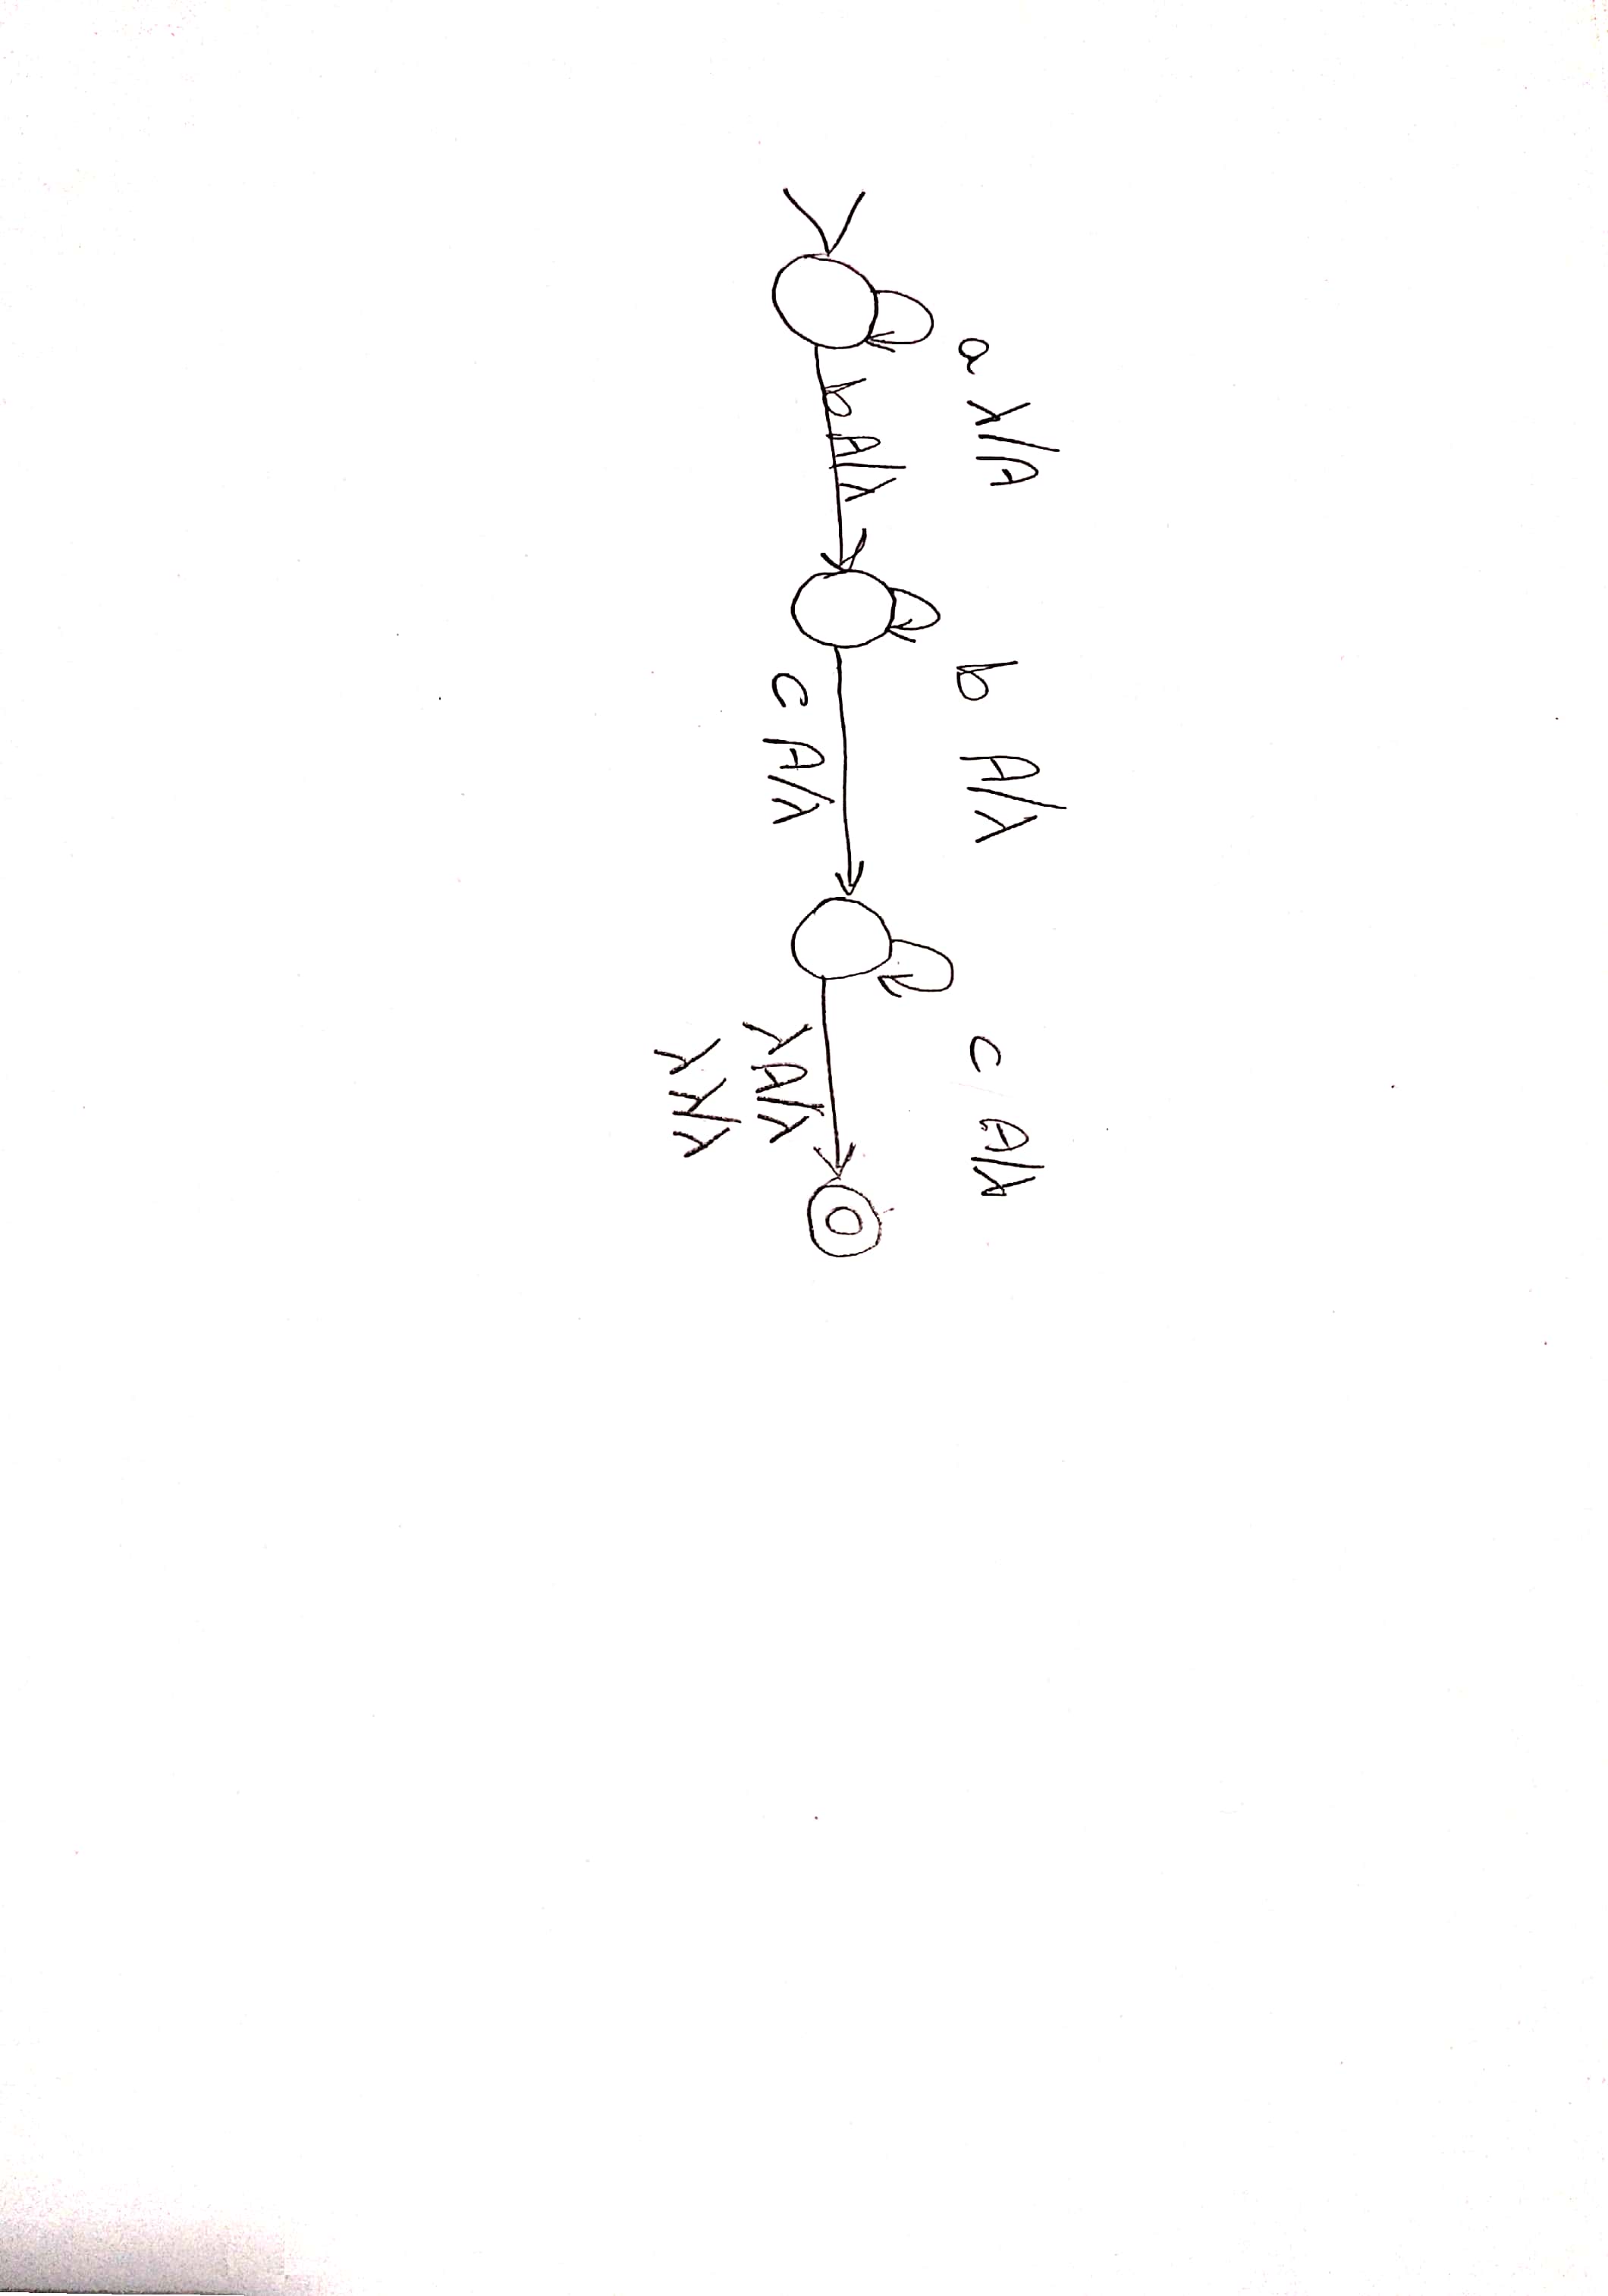 a λ/A
b A/λ
c A/λ
b A/λ
c A/λ
λ A/λ
λ λ/λ